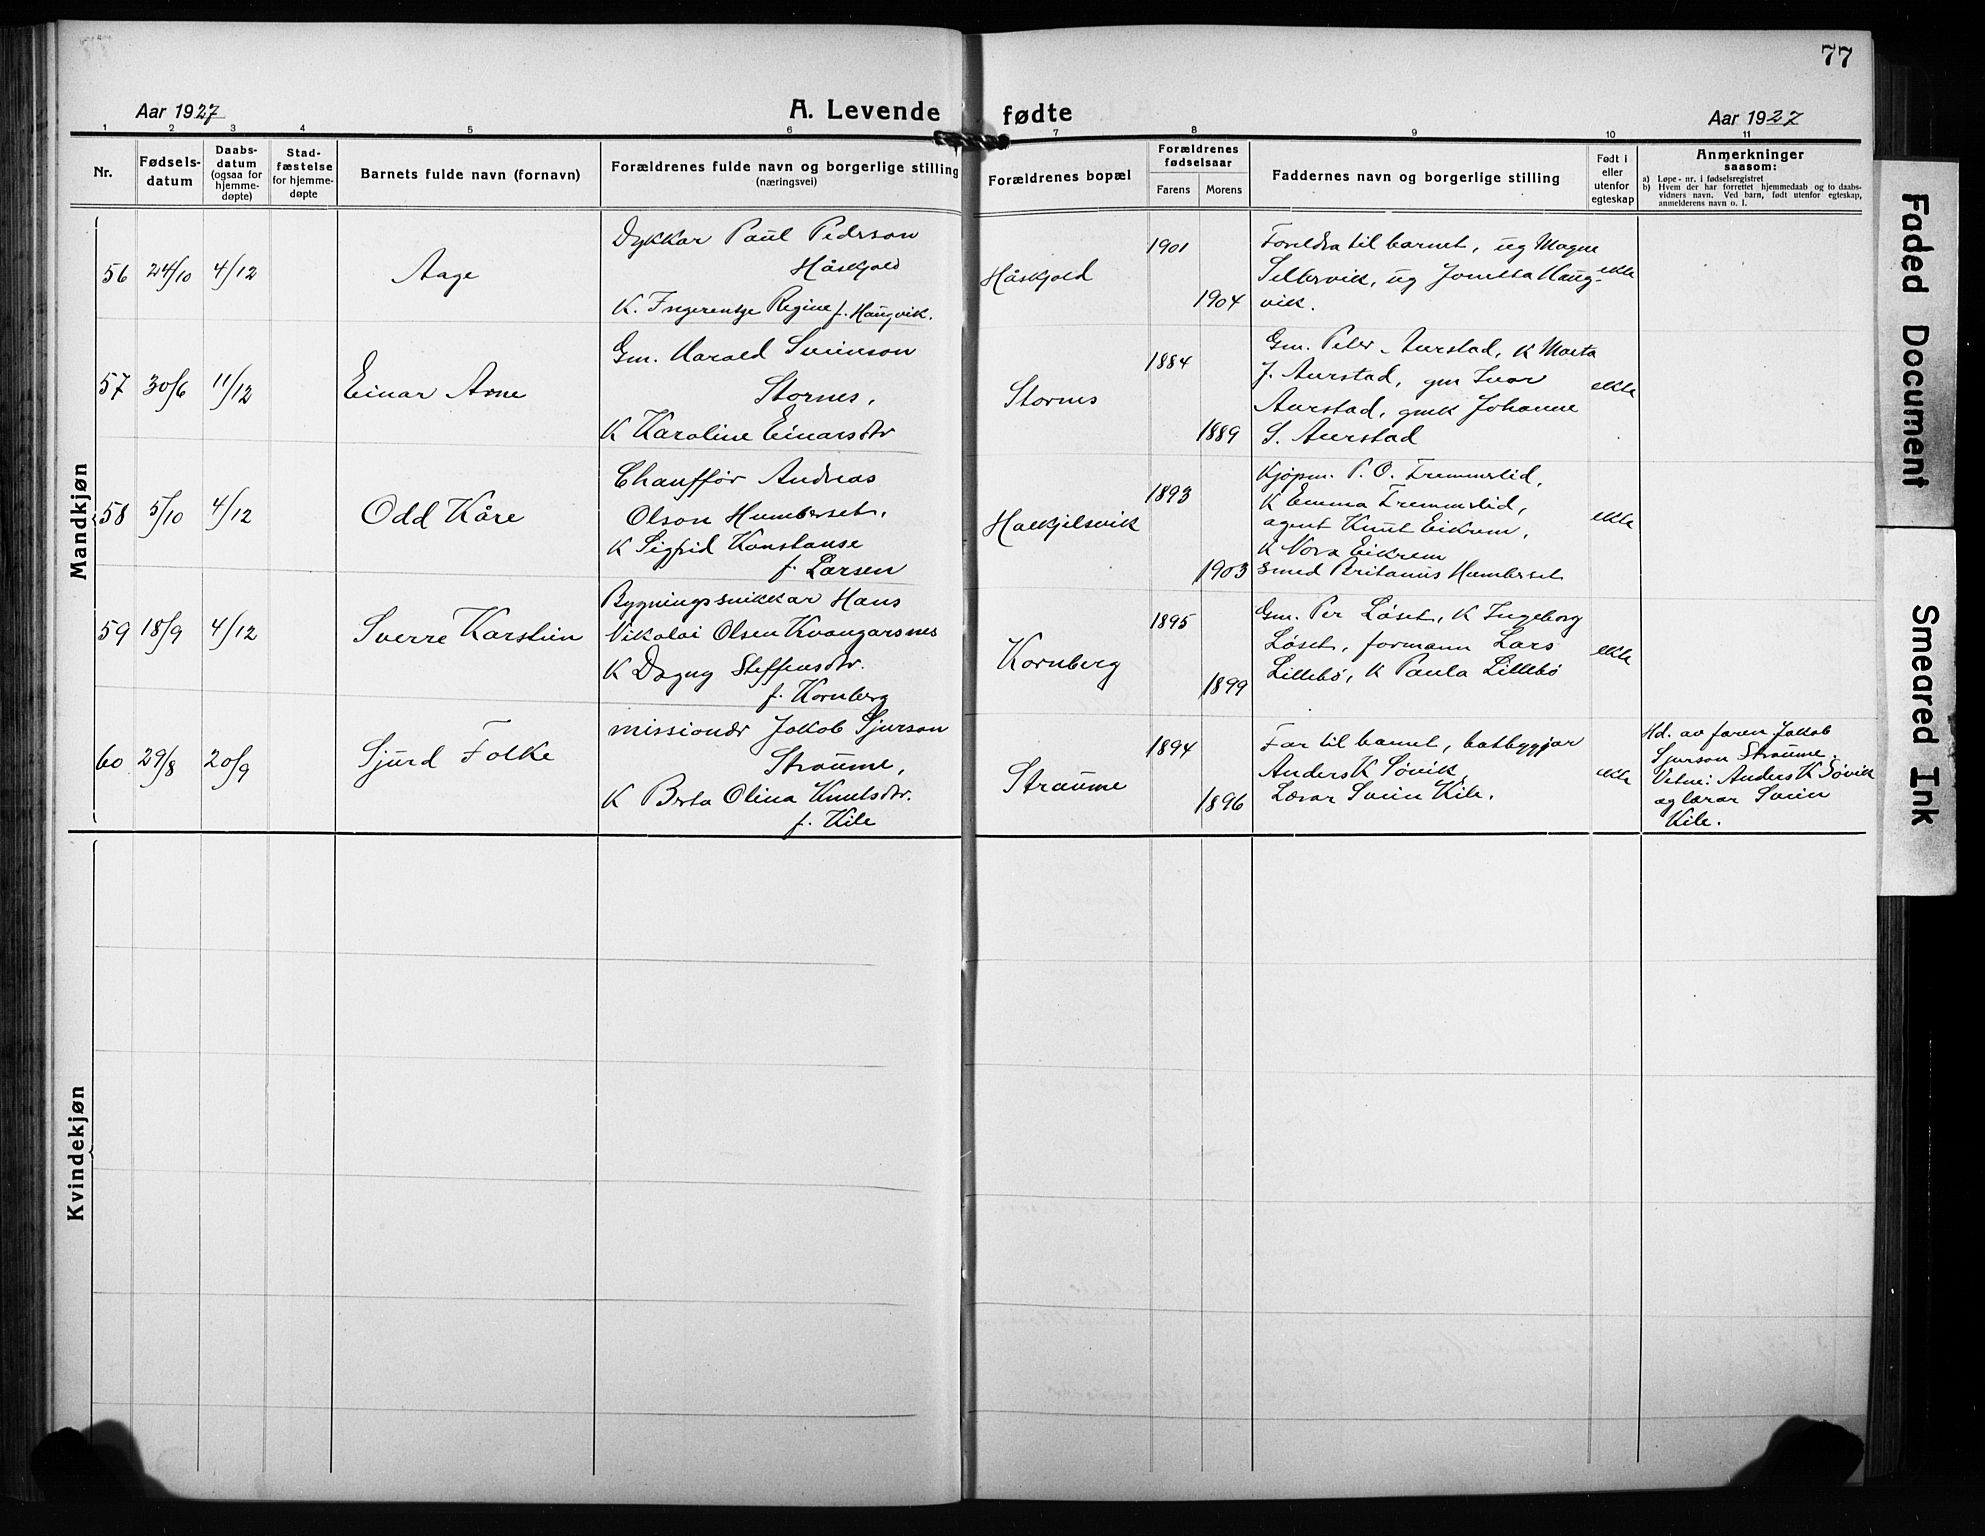 77
Aar 1927
A. Levende fødte
Aar 1927
1 2 3 4 5 6 7 8 9 10 11
Nr.
Fødsels-
datum
Daabs-
datum
(ogsaa for
hjemme-
døpte)
Stad-
fæstelse
for hjemme-
døpte
Barnets fulde navn (fornavn)
Forældrenes fulde navn og borgerlige stilling
(næringsvei)
Forældrenes bopæl
Forældrenes
fødselsaar
Farens
Morens
Faddernes navn og borgerlige stilling
Født i
eller
utenfor
egteskap
Anmerkninger
saasom:
a) Løpe-nr. i fødselsregistret
b) Hvem der har forrettet hjemmedaab og to daabs-
vidners navn. Ved barn, født utenfor egteskap,
anmelderens navn o. l.
Mandkjøn
56 24/10 4/12
Aage
Dykkar Paul Pederson
Håskjold
K. Ingerentse Regine f. Haugvik.
Håskjold
1901
1904
Foreldra til barnet, og Magne
Settervik, og Jonetta Haug-
vik.
ekte
57 30/6 11/12
Einar Arne
Gm. Harald Sveinson
Stornes,
K Karoline Einarsdtr
Stornes
1884
1889
Gm. Peter Aurstad, K Marta
J. Aurstad, gm Ivar
Aurstad, gmk Johanne
S. Aurstad
ekte
58 5/10 4/12
Odd Kåre
Chauffør Andreas
Olson Humberset,
K Sigfrid Konstanse
f. Larsen
Halkjelsvik
1893
1903
Kjøpm. P. O. Fremmerlid,
K Emma Fremmerlid,
agent Knut Eikrem,
K Nora Eikrem
smed Britanus Humberset
ekte
59 18/9 4/12
Sverre Karstein
Bygningssnikkar Hans
Nikolai Olsen Kvangarsnes
K Dagny Steffensdtr.
f. Kornberg
Kornberg
1895
1899
Gm. Per Løset, K Ingeborg
Løset, formann Lars
Lillebø, K Paula Lillebø
ekte
60 29/8 20/9
Sjurd Folke
missionær Jakob Sjurson
Straume,
K Berta Olina Knutsdtr.
f. Kile
Straume
1894
1896
Far til barnet, båtbyggjar
Anders K Søvik,
Lærar Svein Kile.
ekte
Hd. av faren Jakob
Sjurson Straume.
Vitne: Anders K Søvik
og lærar Svein
Kile.
Kvindekjøn
Faded Document
Smeared Ink